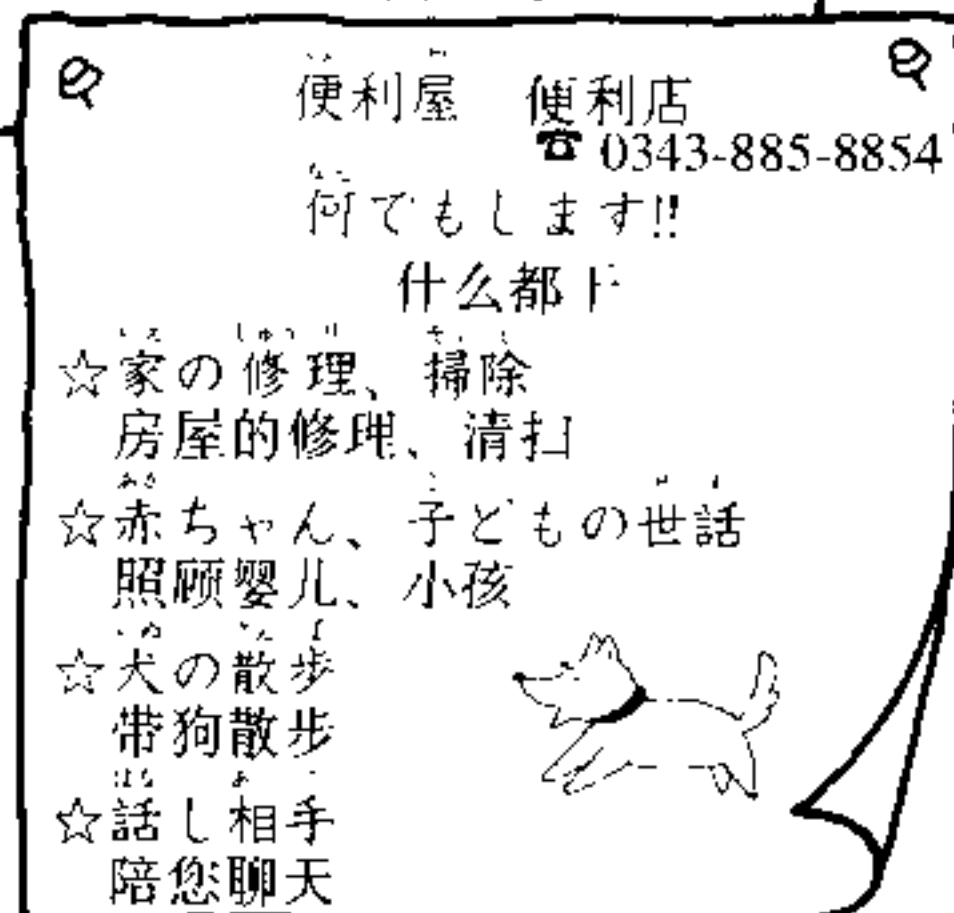 便利屋 便利店
☎ 0343-885-8854
何でもします!!
什么都
☆家の修理、掃除
房屋的修理、清扫
☆赤ちゃん、子どもの世話
照顾婴儿、小孩
☆犬の散歩
带狗散步
☆話し相手
陪您聊天